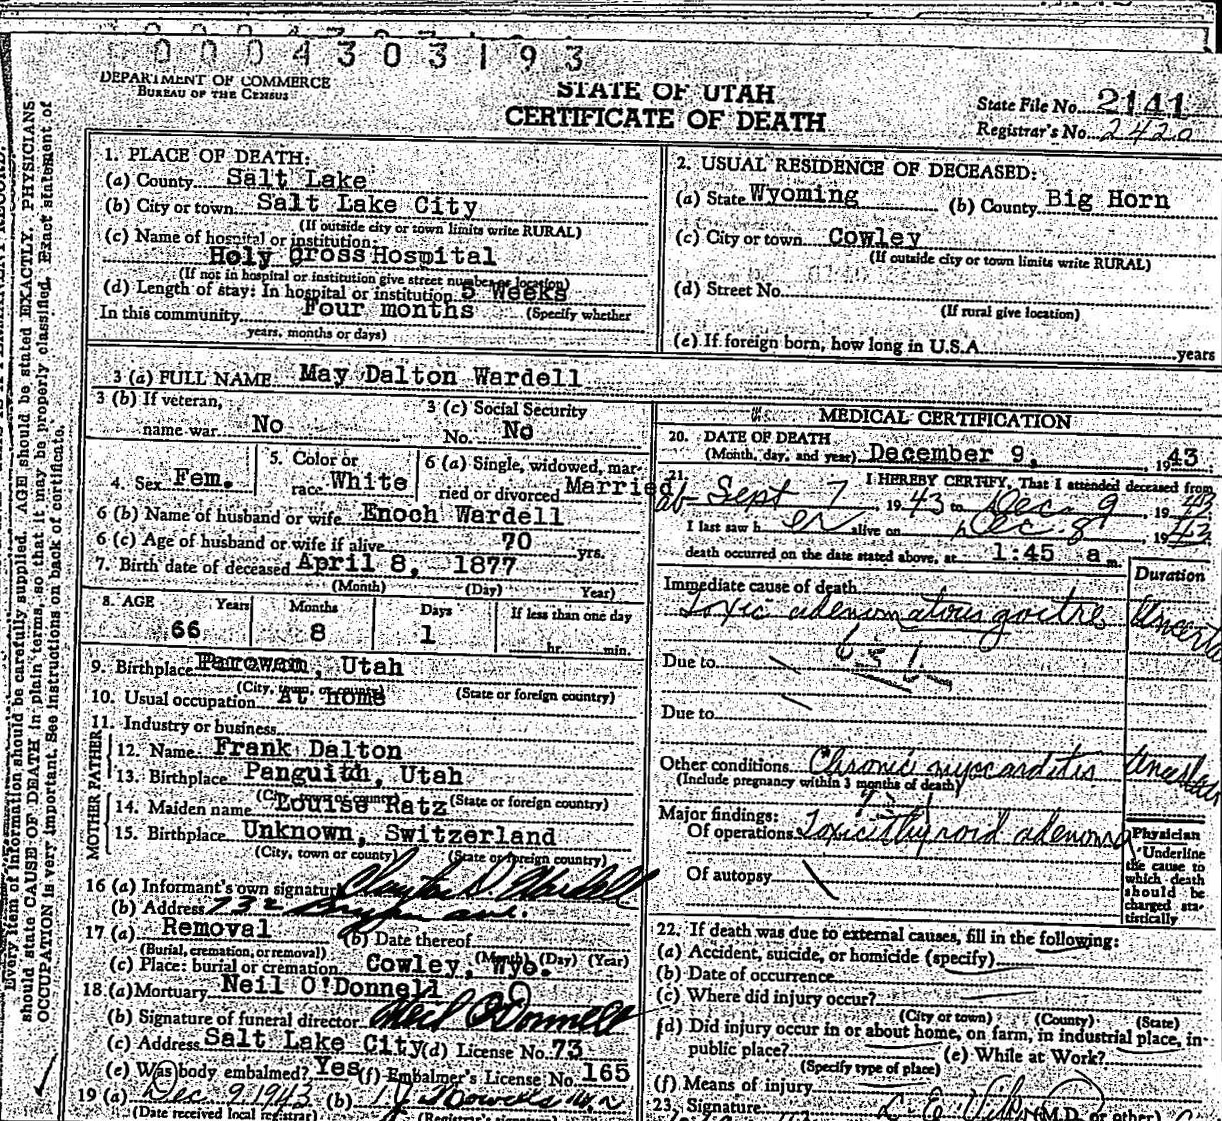 0 0 0 4 3 0 3 1 9 3
DEPARTMENT OF COMMERCE
BUREAU OF THE CENSUS
STATE OF UTAH
CERTIFICATE OF DEATH
State File No. 2141
Registrar's No. 2420
Every item of information should be carefully supplied. AGE should be stated EXACTLY. PHYSICIANS
should state CAUSE OF DEATH in plain terms, so that it may be properly classified. Exact statement of
OCCUPATION is very important. See instructions on back of certificate.
1. PLACE OF DEATH:
(a) County Salt Lake
(b) City or town Salt Lake City
(If outside city or town limits write RURAL)
(c) Name of hospital or institution:
Holy Cross Hospital
(If not in hospital or institution give street number or location)
(d) Length of stay: In hospital or institution 5 Weeks
In this community Four months (Specify whether
years, months or days)
2. USUAL RESIDENCE OF DECEASED:
(a) State Wyoming (b) County Big Horn
(c) City or town Cowley
(If outside city or town limits write RURAL)
(d) Street No.
(If rural give location)
(e) If foreign born, how long in U.S.A. years
3 (a) FULL NAME May Dalton Wardell
3 (b) If veteran,
name war No
3 (c) Social Security
No. No
4. Sex Fem.
5. Color or
race White
6 (a) Single, widowed, mar-
ried or divorced Married
6 (b) Name of husband or wife Enoch Wardell
6 (c) Age of husband or wife if alive 70 yrs.
7. Birth date of deceased April 8, 1877
(Month) (Day) Year)
8. AGE Years Months Days If less than one day
66 8 1 hr. min.
9. Birthplace Parowam, Utah
(City, town, or county) (State or foreign country)
10. Usual occupation At home
11. Industry or business
FATHER
12. Name Frank Dalton
13. Birthplace Panguith, Utah
(City, town or county) (State or foreign country)
MOTHER
14. Maiden name Louise Ratz
15. Birthplace Unknown, Switzerland
(City, town or county) (State or foreign country)
16 (a) Informant's own signature Clayton D. Wardell
(b) Address 732 ave.
17 (a) Removal (b) Date thereof
(Burial, cremation, or removal) (Month) (Day) (Year)
(c) Place: burial or cremation Cowley, Wyo.
18 (a) Mortuary Neil O'Donnell
(b) Signature of funeral director Neil O'Donnell
(c) Address Salt Lake City (d) License No. 73
(e) Was body embalmed? Yes (f) Embalmer's License No. 165
19 (a) Dec 9 1943 (b)
(Date received local registrar) (Registrar's signature)
MEDICAL CERTIFICATION
20. DATE OF DEATH
(Month, day, and year) December 9, 1943
21. I HEREBY CERTIFY, That I attended deceased from
Sept 7 1943 to Dec. 9 1943
I last saw her alive on Dec. 8 1943
death occurred on the date stated above, at 1:45 a m.
Duration
Immediate cause of death
Toxic adenomatous goitre
Due to
Due to
Other conditions Chronic myocarditis
(Include pregnancy within 3 months of death)
Major findings:
Of operations Toxic thyroid adenoma
Of autopsy
Physician
Underline
the cause to
which death
should be
charged sta-
tistically
22. If death was due to external causes, fill in the following:
(a) Accident, suicide, or homicide (specify)
(b) Date of occurrence
(c) Where did injury occur?
(City or town) (County) (State)
(d) Did injury occur in or about home, on farm, in industrial place, in
public place? (e) While at Work?
(Specify type of place)
(f) Means of injury
23. Signature (M.D. or other)